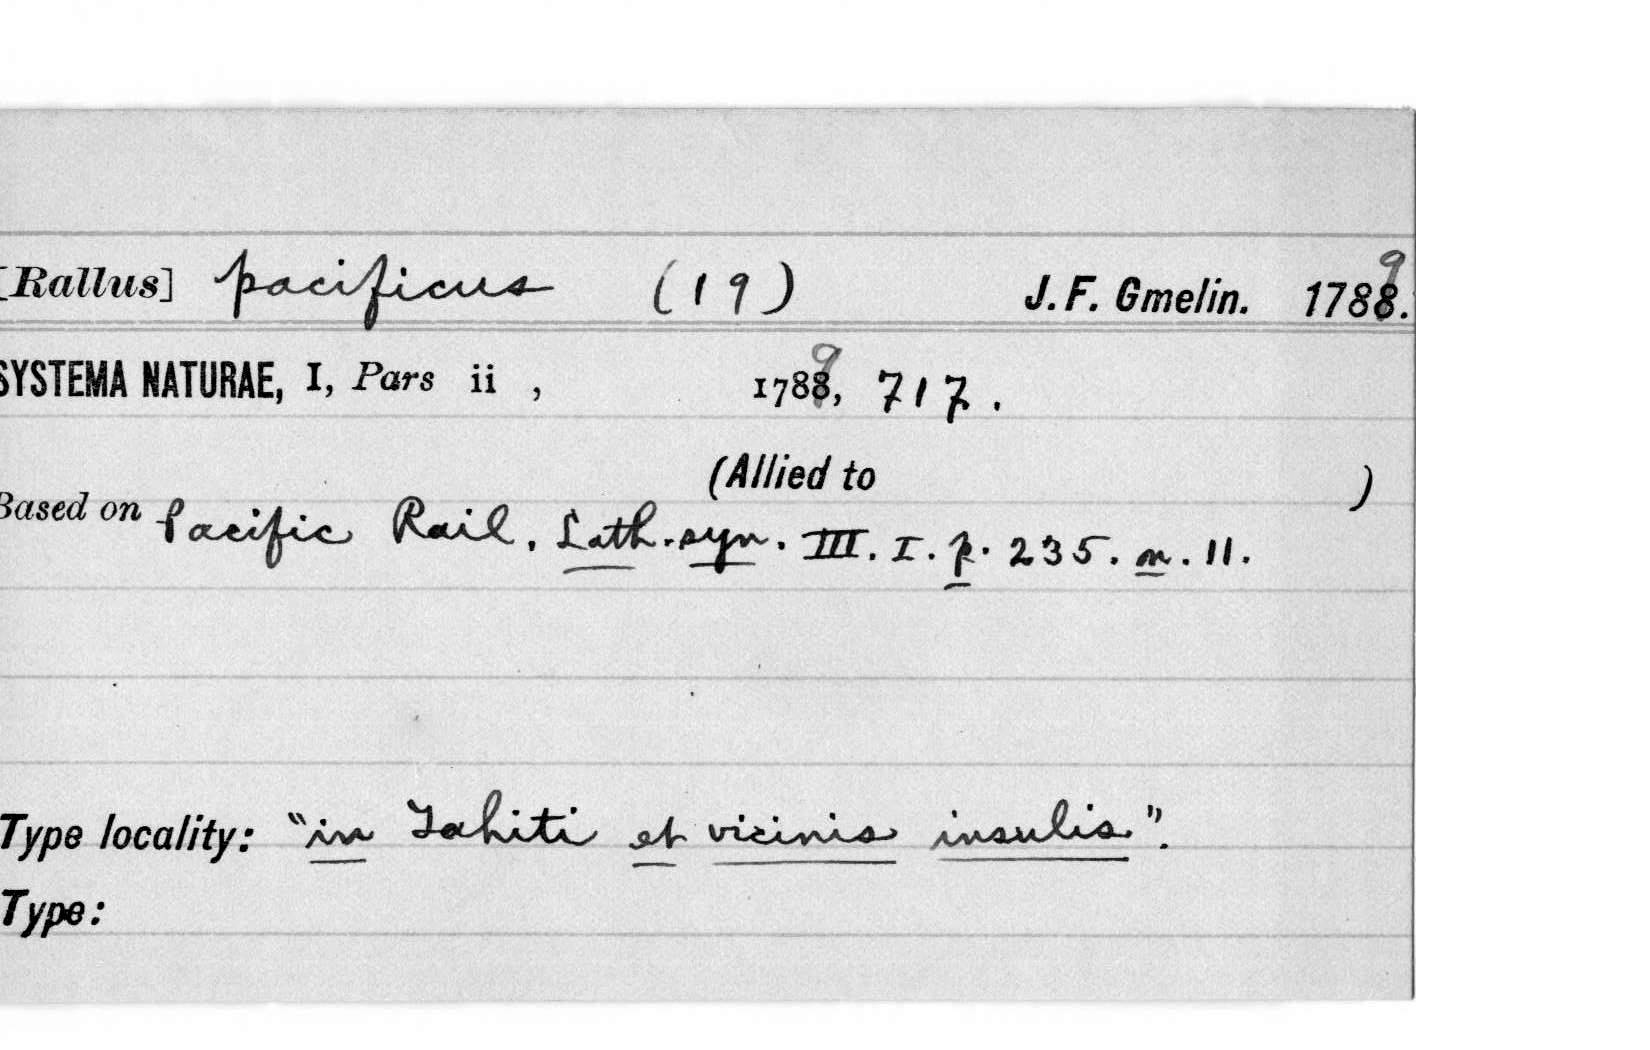 [Rallus] pacificus (19) J. F. Gmelin. 1789.
SYSTEMA NATURAE, I, Pars ii , 1789, 717.
(Allied to )
Based on Pacific Rail. Lath. syn. III. I. p. 235. n. 11.
Type locality: "in Tahiti et vicinis insulis".
Type: